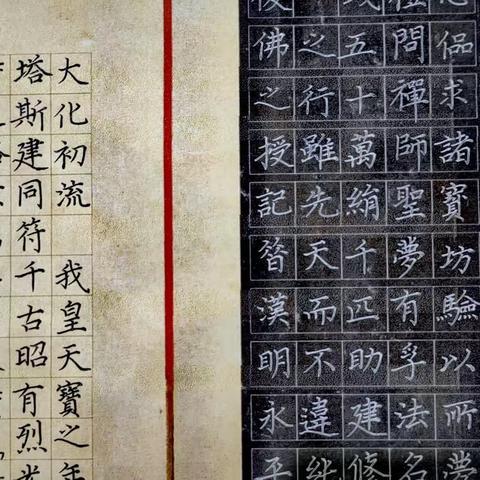 偘求諸寶坊驗以所夢
問禪師聖夢有孚法名
五十萬絹千匹助建修
之行雖先天而不違純
後佛之授記昔漢明永平
大化初流 我皇天寶之年
塔斯建同符千古昭有烈光